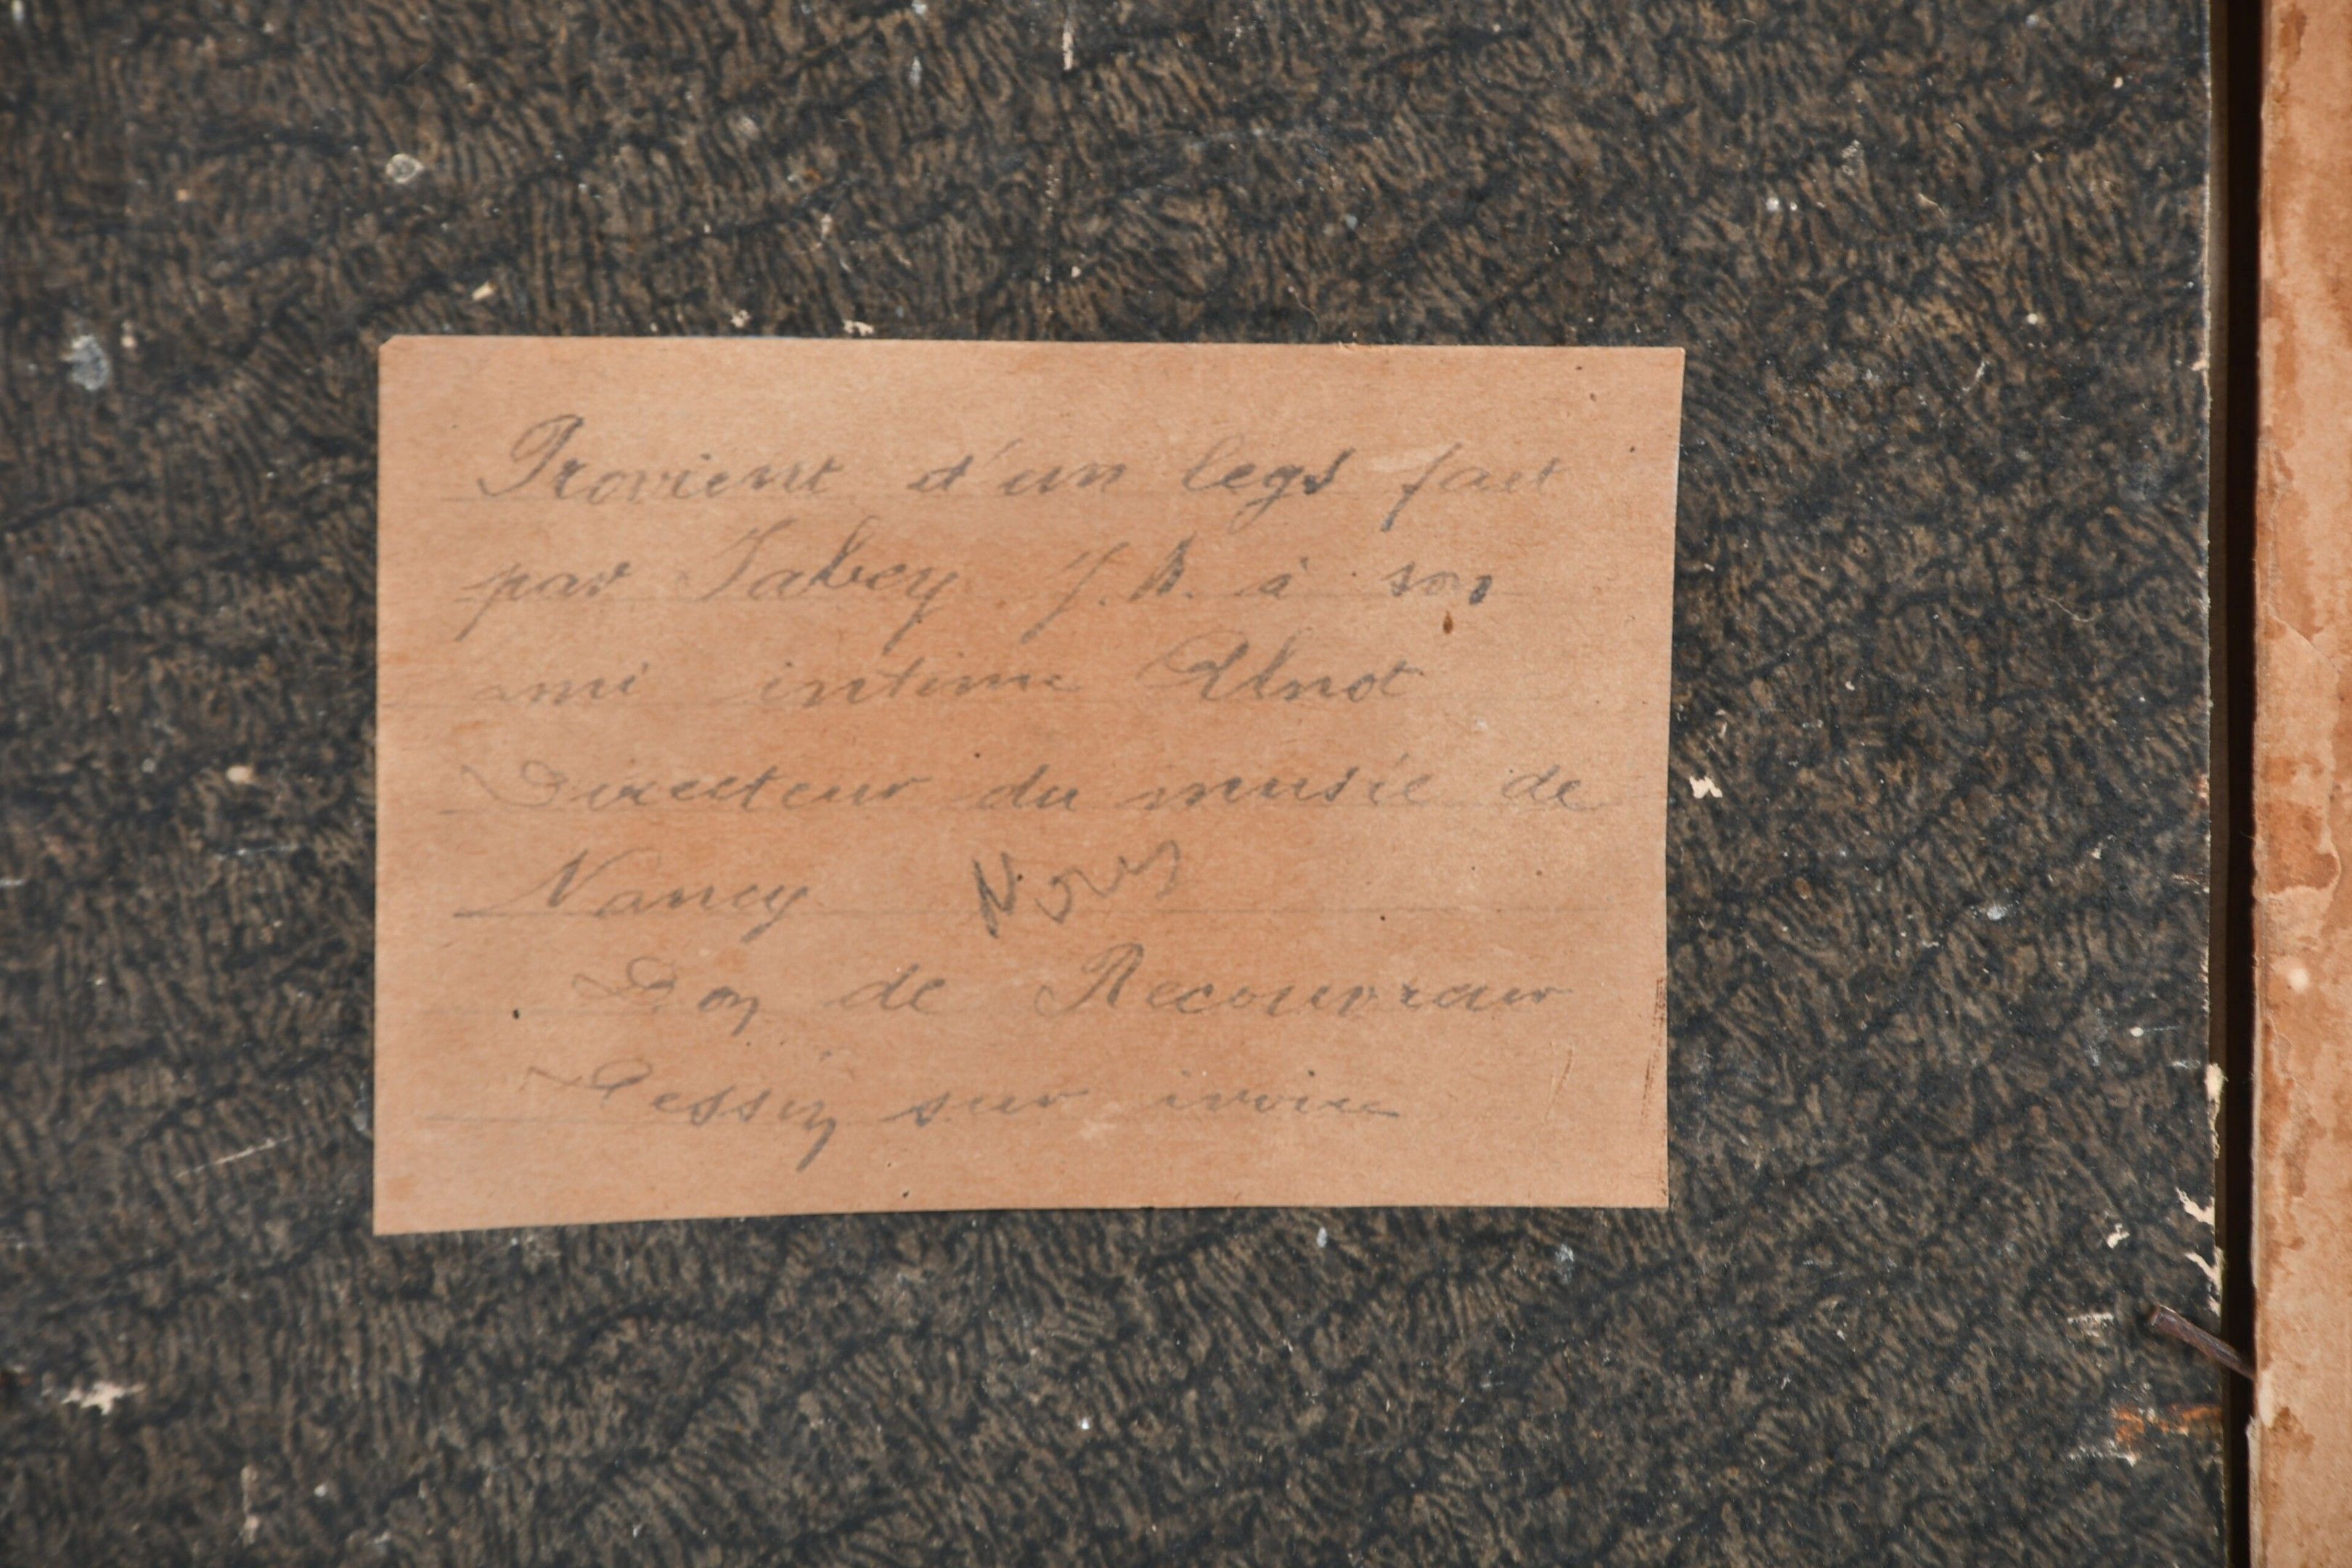 Provient d'un legs fait
par Isabey J. B. à son
ami intime
Directeur du musée de
Nancy
Don de Recouvreur
Dessin sur ivoire